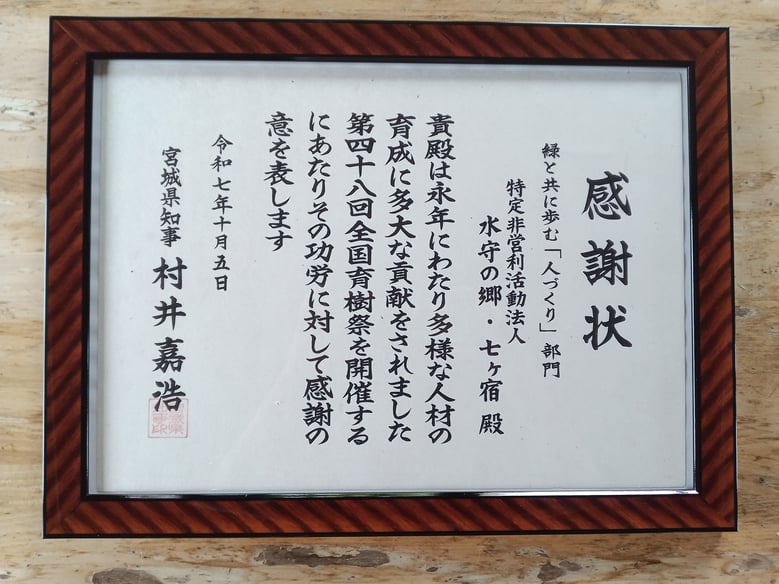 感謝状
緑と共に歩む「人づくり」部門
特定非営利活動法人
水守の郷・七ヶ宿 殿
貴殿は永年にわたり多様な人材の
育成に多大な貢献をされました
第四十八回全国育樹祭を開催する
にあたりその功労に対して感謝の
意を表します
令和七年十月五日
宮城県知事 村井嘉浩